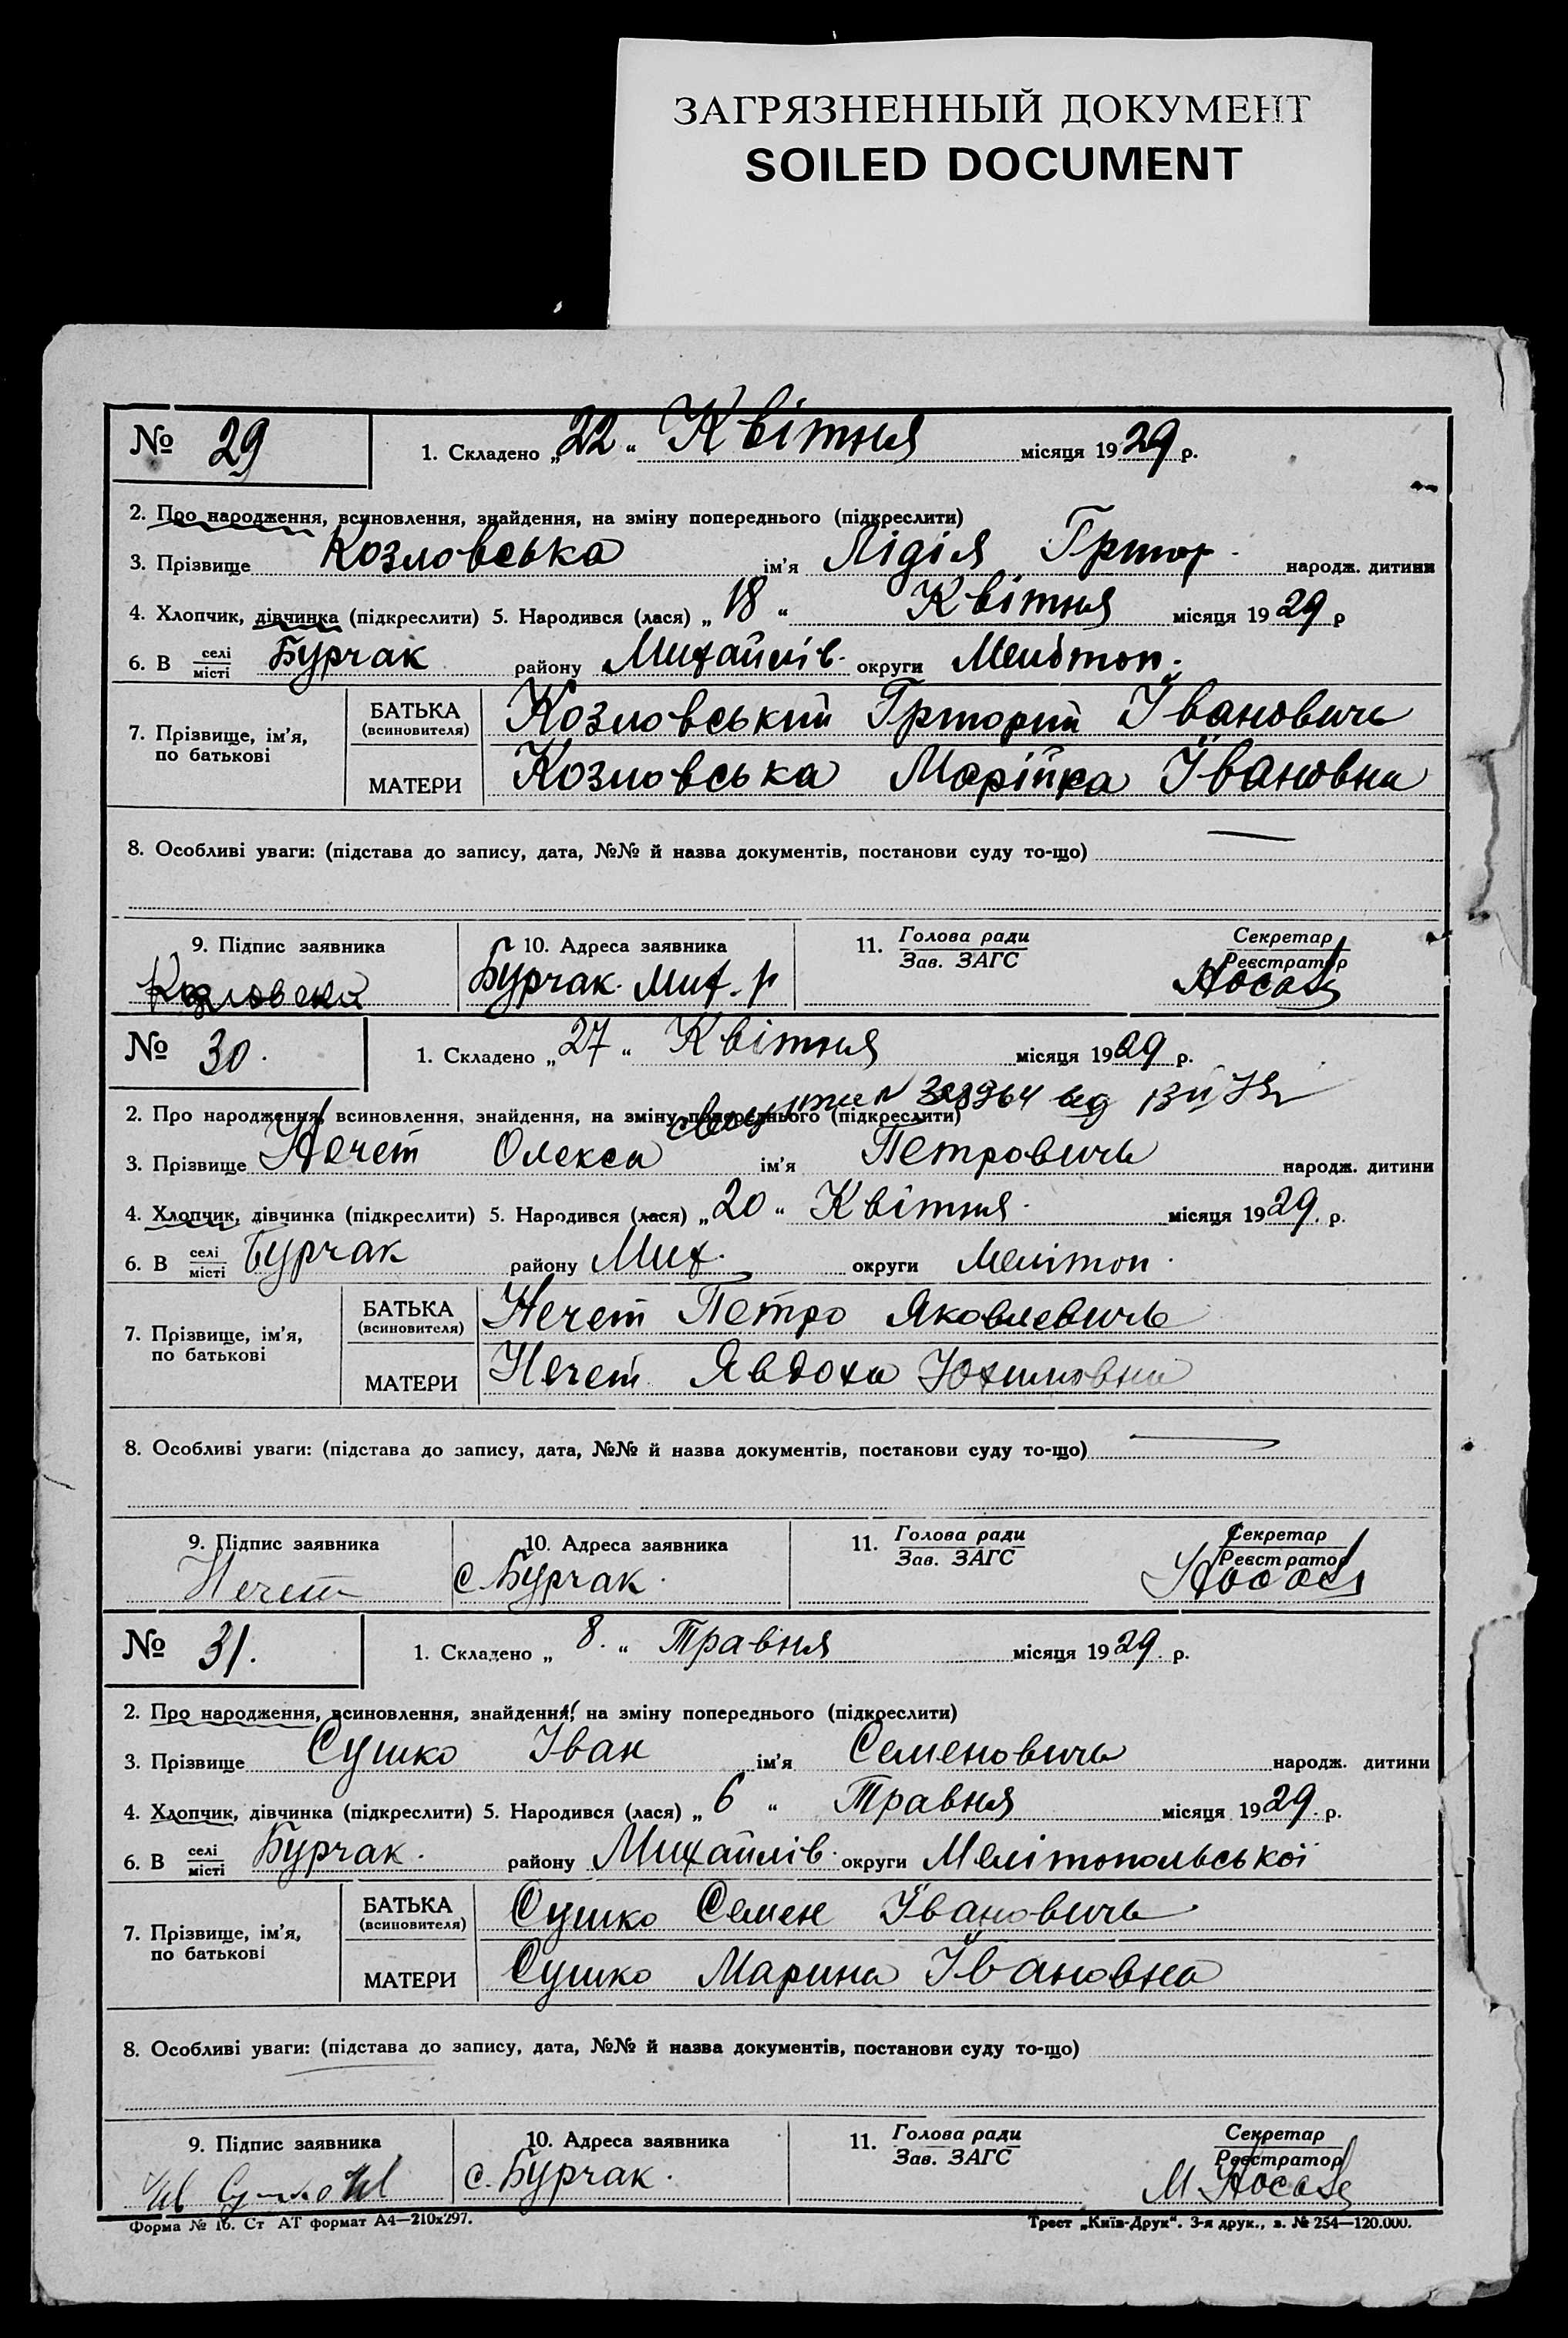 ЗАГРЯЗНЕННЫЙ ДОКУМЕНТ
SOILED DOCUMENT
№ 29
1. Складено „22“ Квітня місяця 1929 р.
2. Про народження, всиновлення, знайдення, на зміну попереднього (підкреслити)
3. Прізвище Козловська ім'я Лідія Григор. народж. дитини
4. Хлопчик, дівчинка (підкреслити) 5. Народився (лася) „18“ Квітня місяця 1929 р
6. В селі місті Бурчак району Михайлів. округи Меліtоп.
7. Прізвище, ім'я, по батькові
БАТЬКА (всиновителя) Козловський Григорий Івановичь
МАТЕРИ Козловська Марійка Івановна
8. Особливі уваги: (підстава до запису, дата, №№ й назва документів, постанови суду то-що)
9. Підпис заявника 10. Адреса заявника 11. Голова ради Зав. ЗАГС Секретар Реєстратор
Козловска Бурчак. Мих. р Носов
№ 30.
1. Складено „27“ Квітня місяця 1929 р.
№ 328964 від
2. Про народження, всиновлення, знайдення, на зміну попереднього (підкреслити)
3. Прізвище Нечет Олекса ім'я Петровичь народж. дитини
4. Хлопчик, дівчинка (підкреслити) 5. Народився (лася) „20“ Квітня. місяця 1929. р.
6. В селі місті Бурчак району Мих. округи Мелітоп.
7. Прізвище, ім'я, по батькові
БАТЬКА (всиновителя) Нечет Петро Яковлевичь
МАТЕРИ Нечет Явдоха Юхимовна
8. Особливі уваги: (підстава до запису, дата, №№ й назва документів, постанови суду то-що)
9. Підпис заявника 10. Адреса заявника 11. Голова ради Зав. ЗАГС Секретар Реєстратор
Нечет с. Бурчак. Носов
№ 31.
1. Складено „8.“ Травня місяця 1929. р.
2. Про народження, всиновлення, знайдення, на зміну попереднього (підкреслити)
3. Прізвище Сушко Іван ім'я Семеновичь народж. дитини
4. Хлопчик, дівчинка (підкреслити) 5. Народився (лася) „6“ Травня місяця 1929. р.
6. В селі місті Бурчак. району Михайлів. округи Мелітопольської
7. Прізвище, ім'я, по батькові
БАТЬКА (всиновителя) Сушко Семен Івановичь
МАТЕРИ Сушко Марина Івановна
8. Особливі уваги: (підстава до запису, дата, №№ й назва документів, постанови суду то-що)
9. Підпис заявника 10. Адреса заявника 11. Голова ради Зав. ЗАГС Секретар Реєстратор
с. Бурчак. М. Носов
Форма № 16. Ст АТ формат А4—210x297. Трест „Київ-Друк“. 3-я друк., з. № 254—120.000.